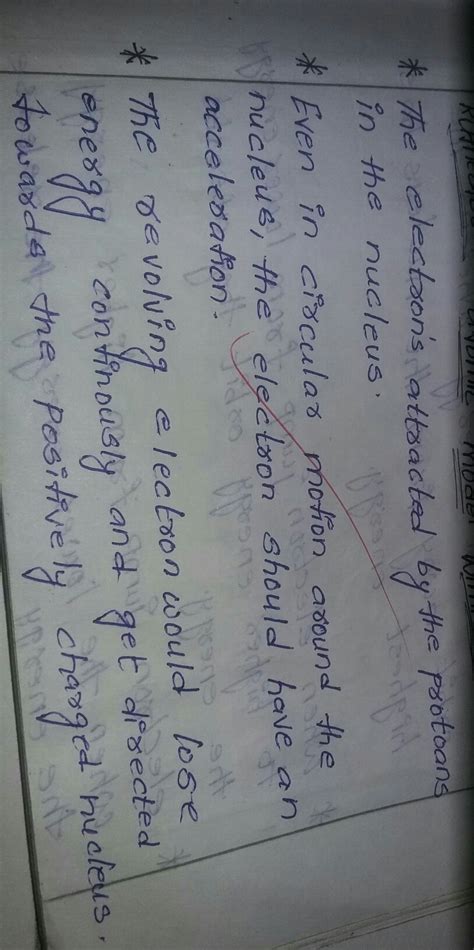 * The electron's attracted by the protoons
in the nucleus.
* Even in circular motion around the
nucleus, the electron should have an
acceleration.
* The revolving electron would lose
energy continously and get directed
towards the positively charged nucleus.